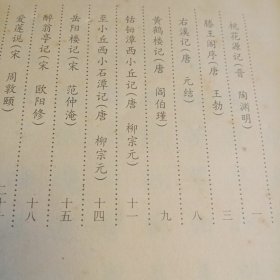 桃花源记(晋 陶渊明) 一
滕王阁序(唐 王勃) 三
右溪记(唐 元结) 八
黄鹤楼记(唐 阎伯瑾) 九
钴鉧潭西小丘记(唐 柳宗元) 十一
至小丘西小石潭记(唐 柳宗元) 十四
岳阳楼记(宋 范仲淹) 十五
醉翁亭记(宋 欧阳修) 十八
爱莲说(宋 周敦颐) 二十一